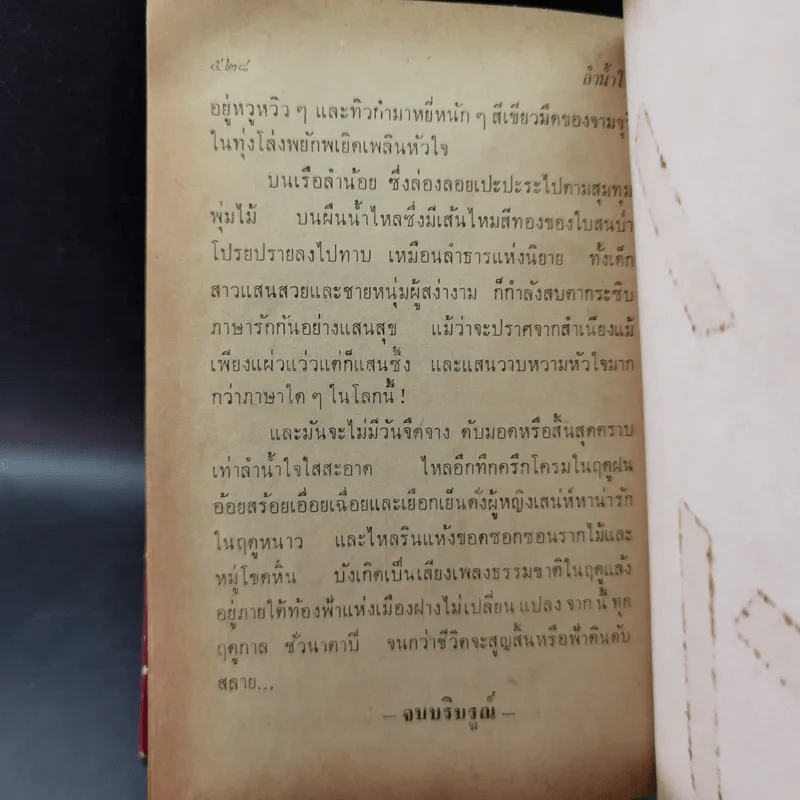 ๕๒๘
ลำน้ำใ
อยู่หวูหวิว ๆ และทิวกำมาหยี่หนัก ๆ สีเขียวมืดของจามจุรี
ในทุ่งโล่งพยักพเยิดเพลินหัวใจ
บนเรือลำน้อย ซึ่งล่องลอยเปะปะระไปตามสุมทุม
พุ่มไม้ บนผืนน้ำไหลซึ่งมีเส้นไหมสีทองของใบสนบ่ำ
โปรยปรายลงไปทาบ เหมือนลำธารแห่งนิยาย ทั้งเด็ก
สาวแสนสวยและชายหนุ่มผู้สง่างาม ก็กำลังสบตากระซิบ
ภาษารักกันอย่างแสนสุข แม้ว่าจะปราศจากสำเนียงแม้
เพียงแผ่วแว่วแต่ก็แสนซึ้ง และแสนวาบหวามหัวใจมาก
กว่าภาษาใด ๆ ในโลกนี้ !
และมันจะไม่มีวันจืดจาง ดับมอดหรือสิ้นสุดตราบ
เท่าลำน้ำใจใสสะอาด ไหลอึกทึกครึกโครมในฤดูฝน
อ้อยสร้อยเอื่อยเฉื่อยและเยือกเย็นดั่งผู้หญิงเสน่ห์หาน่ารัก
ในฤดูหนาว และไหลรินแห้งขอดซอกซอนรากไม้และ
หมู่โขดหิน บังเกิดเป็นเสียงเพลงธรรมชาติในฤดูแล้ง
อยู่ภายใต้ท้องฟ้าแห่งเมืองฝางไม่เปลี่ยน แปลง จาก นี้ ทุก
ฤดูกาล ชั่วนาตาปี จนกว่าชีวิตจะสูญสิ้นหรือฟ้าดินดับ
สลาย...
– จบบริบรูณ์ –